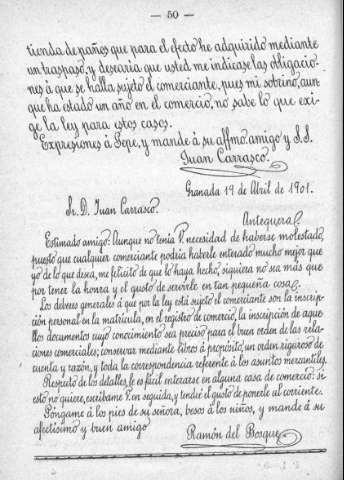 — 50 —
tienda de paños que para el efecto he adquirido mediante
un traspaso, y desearia que usted me indicase las obligacio-
nes á que se halla sujeto el comerciante, pues mi sobrino, aun-
que ha estado un año en el comercio, no sabe lo que exi-
ge la ley para estos casos.
Expresiones á Pepe, y mande á su affmo. amigo y S. S.
Juan Carrasco.
Granada 19 de Abril de 1901.
Sr. D. Juan Carrasco.
Antequera.
Estimado amigo: Aunque no tenia V. necesidad de haberse molestado,
puesto que cualquier comerciante podría haberle enterado mucho mejor que
yo de lo que desea, me felicito de que lo haya hecho, siquiera no sea más que
por tener la honra y el gusto de servirle en tan pequeña cosa.
Los deberes generales á que por la ley está sujeto el comerciante son la inscrip-
ción personal en la matrícula, en el registro de comercio, la inscripción de aque-
llos documentos cuyo conocimiento sea preciso para el buen orden de las rela-
ciones comerciales; conservar mediante libros á propósito, un orden riguroso de
cuenta y razón, y toda la correspondencia referente á los asuntos mercantiles.
Respecto de los detalles, le es fácil enterarse en alguna casa de comercio: si
esto no quiere, escríbame V. en seguida, y tendré el gusto de ponerle al corriente.
Póngame á los pies de su señora, besos á los niños, y mande á su
afectísimo y buen amigo
Ramón del Bosque